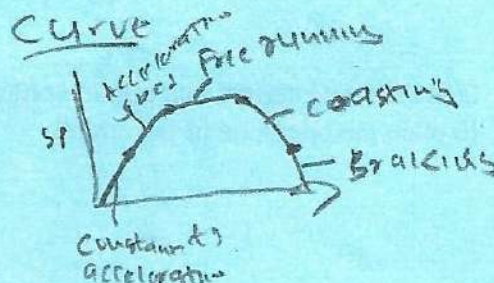 Curve
Acceleration
Free running
Coasting
SP
Braking
Constant
acceleration